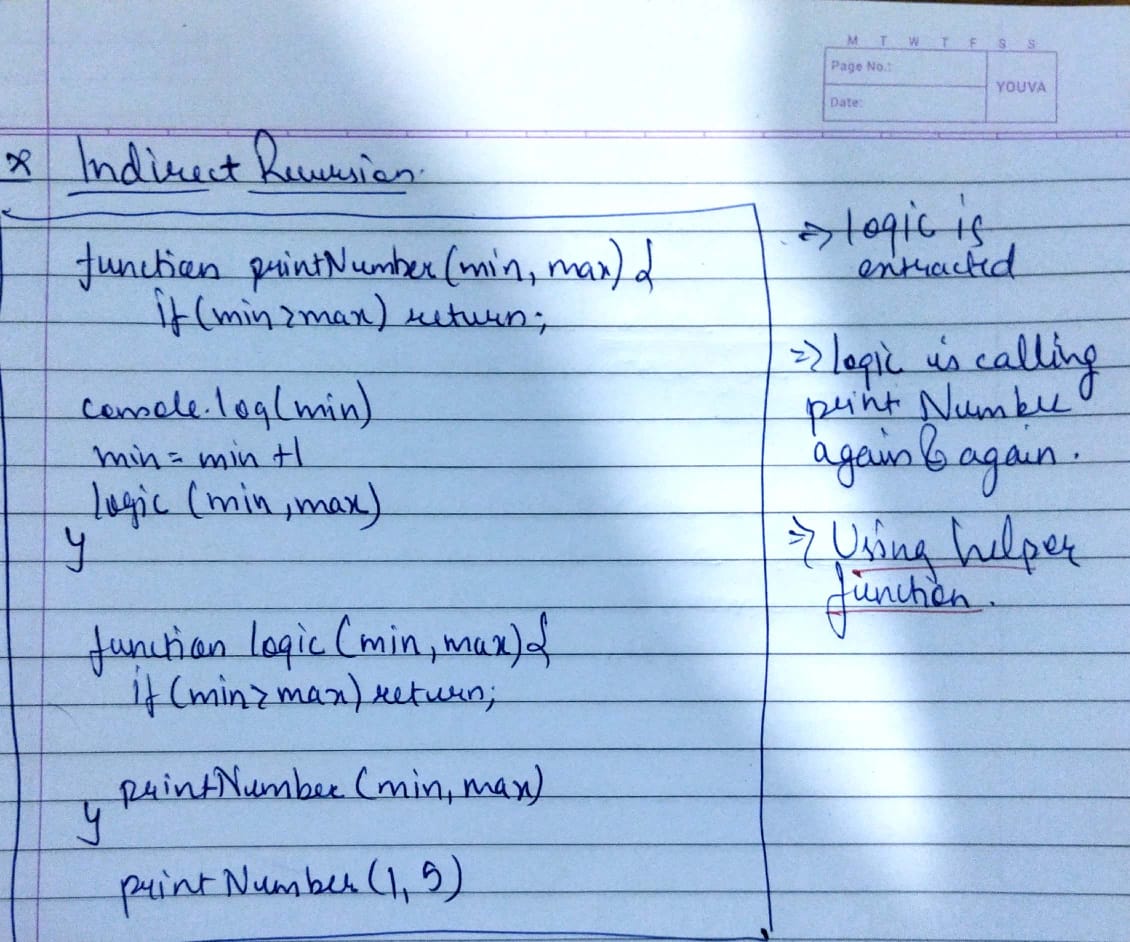 M T W T F S S
Page No.:
YOUVA
Date:
* Indirect Recursion.
function printNumber(min, max) {
if (min > max) return;
console.log(min)
min = min + 1
logic (min, max)
}
function logic (min, max) {
if (min > max) return;
printNumber (min, max)
}
printNumber (1, 5)
=> logic is
extracted
=> logic is calling
print Number
again & again.
=> Using helper
function.